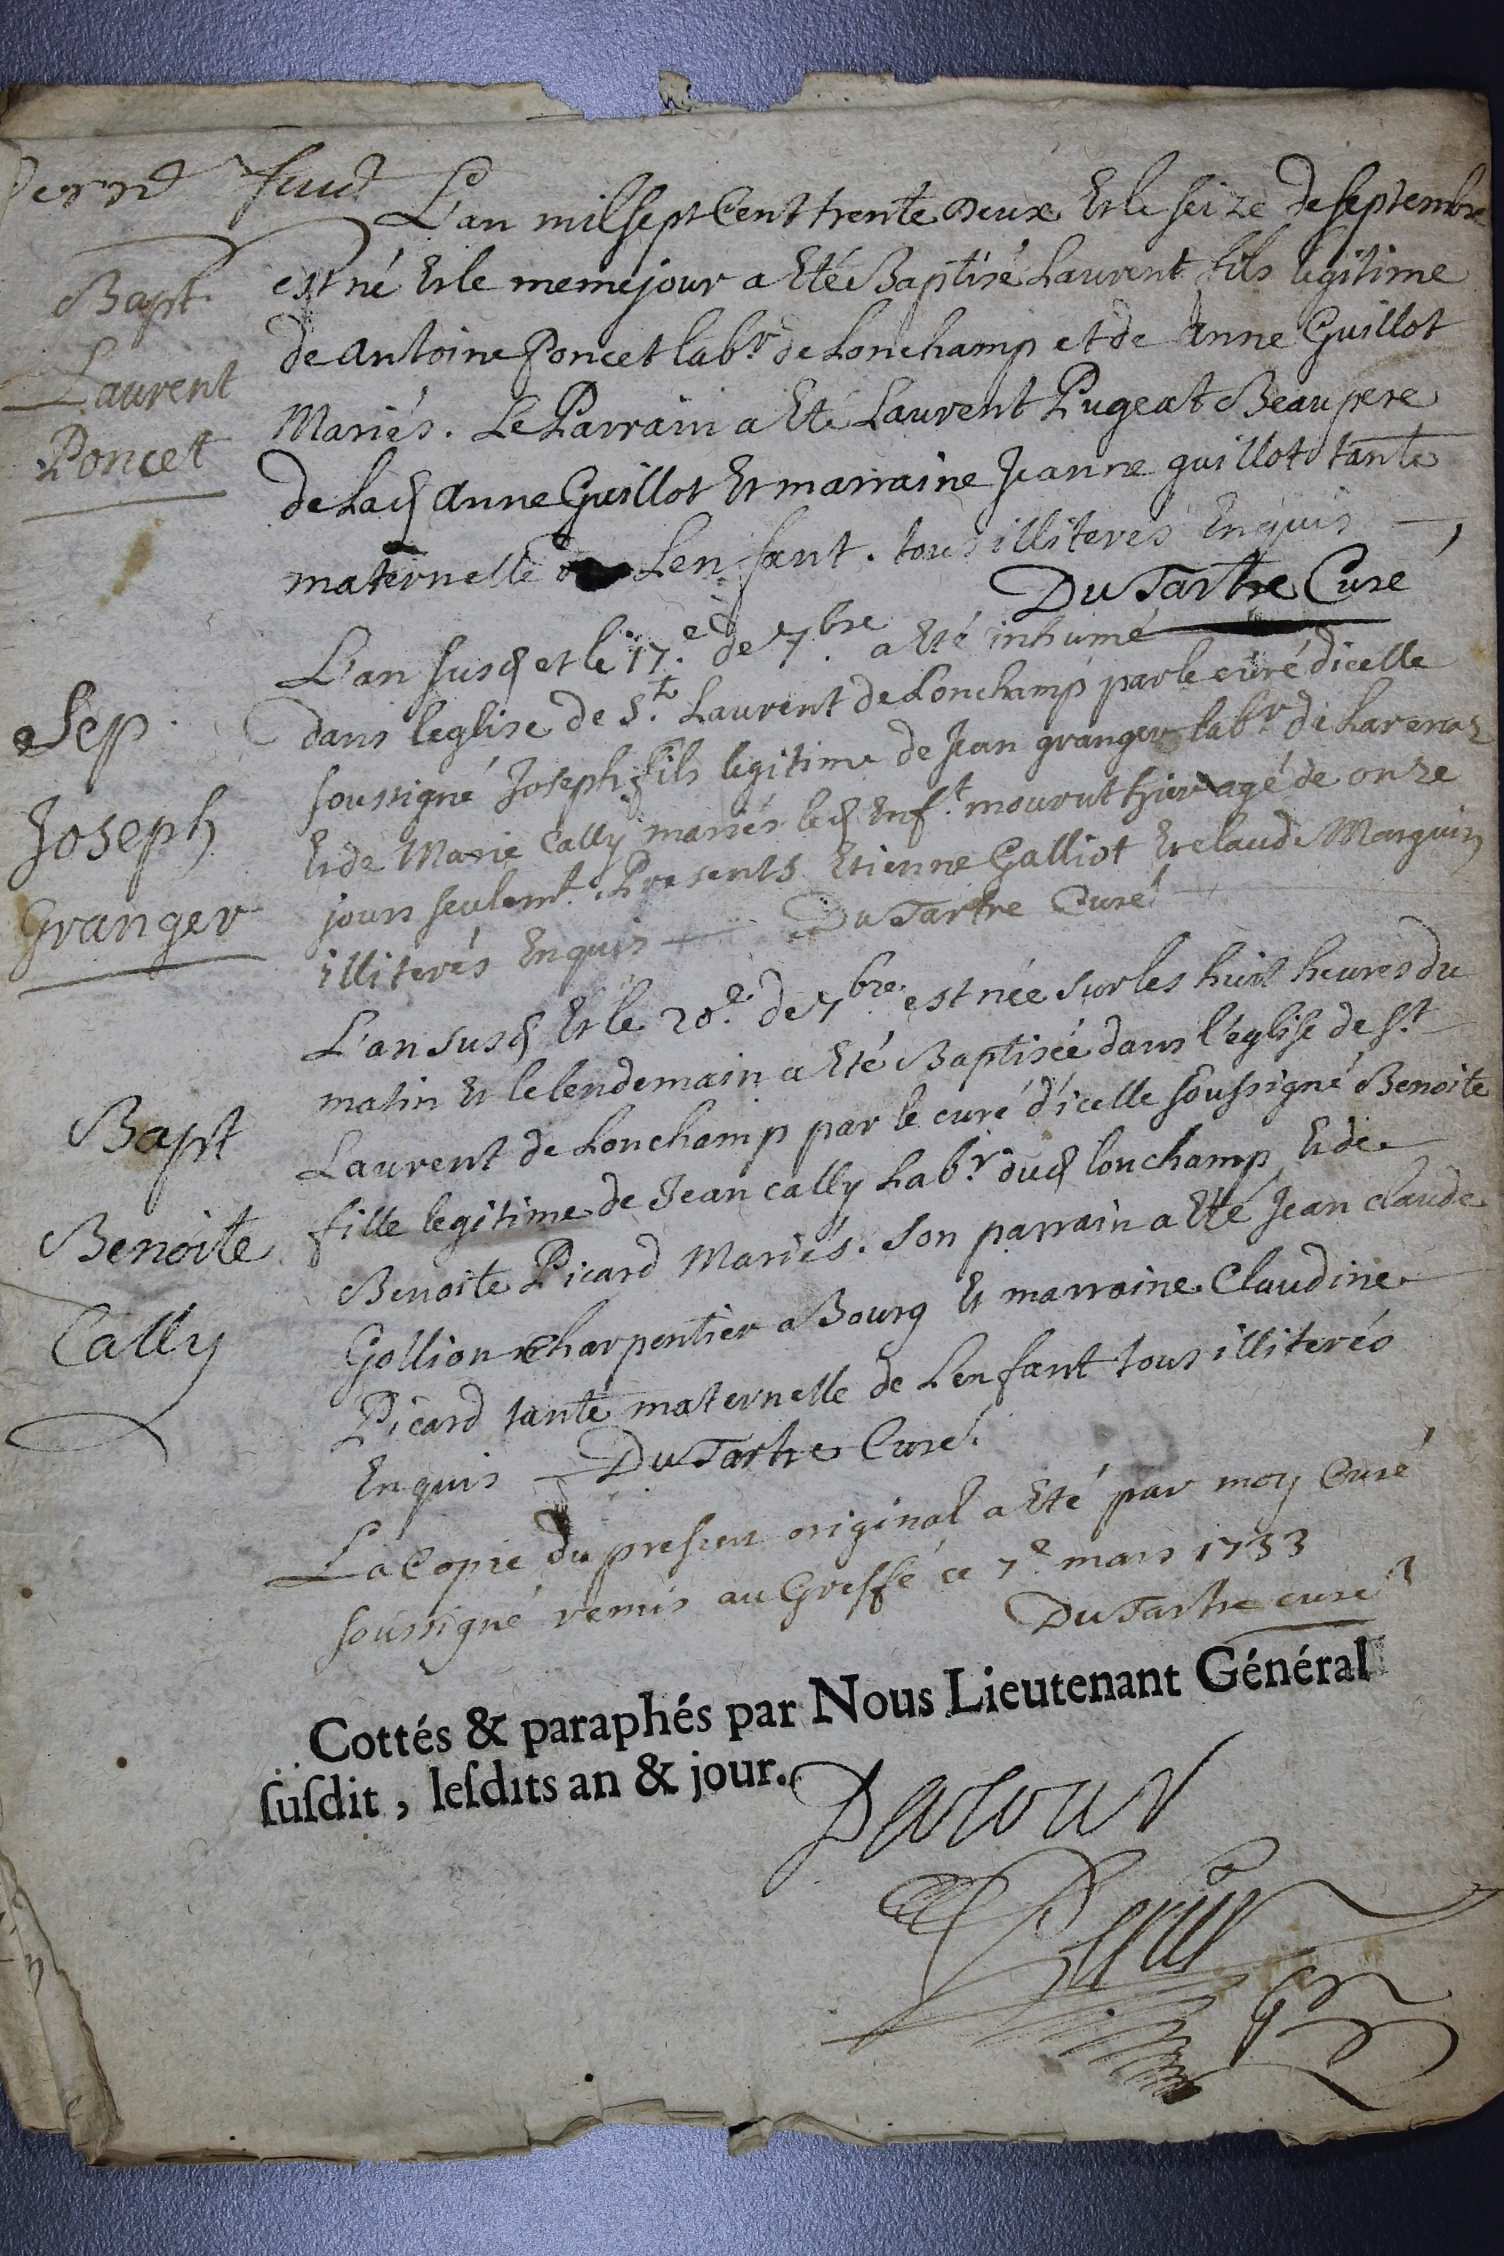 L'an mil sept Cent trente Deux Et le seize de septembre
Bapt.
Laurent
Poncet
est né Et le meme jour a Eté Baptisé Laurent fils legitime
de Antoine Poncet labr. de Lonchamp et de Anne Guillot
Mariés. Le Parrain a Eté Laurent Pugeat Beaupere
de Lad Anne Guillot Et marraine Jeanne guillot tante
maternelle de Lenfant. tous illiteres Enquis
DuTartre Curé
Sep.
Joseph
Granger
L'an susd et le 17.e de 7.bre a Eté inhumé
dans leglise de S.t Laurent de Lonchamp par le curé dicelle
soussigné Joseph fils legitime de Jean granger labr de Larenaz
Et de Marie Cally mariés led Enf.t mourut hier agé de onze
jours seulemt. Presents Etienne Galliot Et claude Marguin
illiterés Enquis DuTartre Curé
Bapt
Benoite
Cally
L'an susd Et le 20e. de 7bre. est née sur les huit heures du
matin Et le lendemain a Eté Baptisée dans l'église de S.t
Laurent de Lonchamp par le curé d'icelle soussigné Benoite
fille legitime de Jean cally Labr. dud lonchamp Et de
Benoite Picard Mariés. Son parrain a Eté Jean claude
Gollion charpentier a Bourg Et marraine Claudine
Picard tante maternelle de Lenfant tous illiterés
Enquis DuTartre Curé.
La Copie du present original a Eté par moy Curé
soussigné remis au Greffe ce 7e mars 1733
DuTartre curé
Cottés & paraphés par Nous Lieutenant Général
ſuſdit, leſdits an & jour.